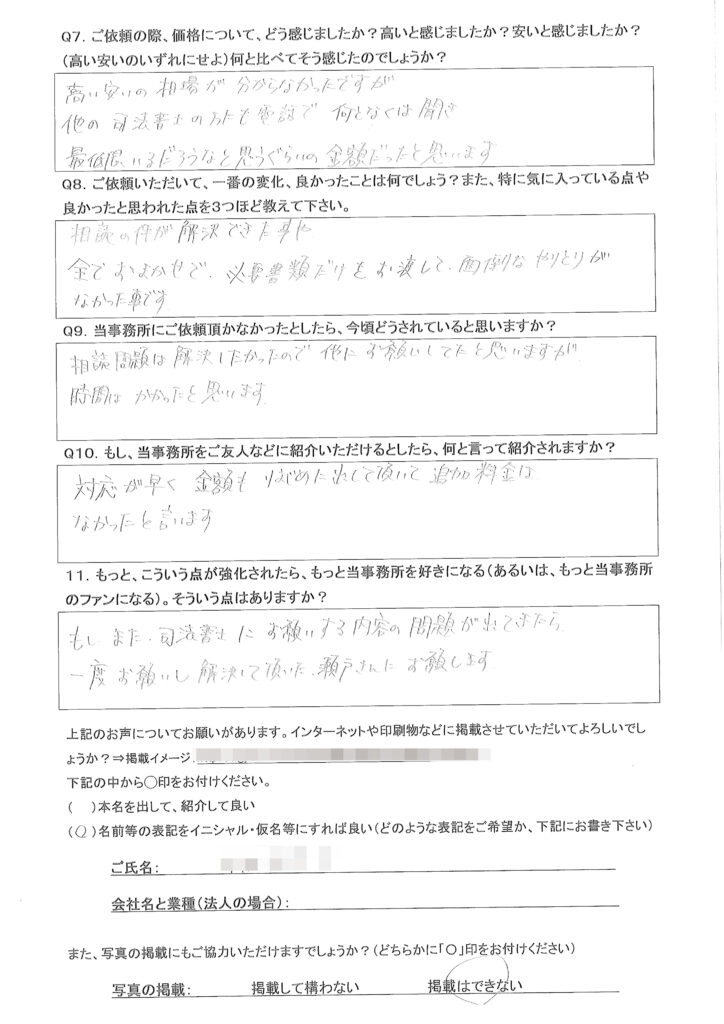 Q7．ご依頼の際、価格について、どう感じましたか？高いと感じましたか？安いと感じましたか？
（高い安いのいずれにせよ）何と比べてそう感じたのでしょうか？
高い安いの相場が分からなかったですが
他の司法書士のかたも電話で何となくは聞き
最低限いるだろうなと思うぐらいの金額だったと思います
Q8．ご依頼いただいて、一番の変化、良かったことは何でしょう？また、特に気に入っている点や
良かったと思われた点を3つほど教えて下さい。
相談の件が解決できた事や
全ておまかせで、必要書類だけをお渡して、面倒なやりとりが
なかった事です
Q9．当事務所にご依頼頂かなかったとしたら、今頃どうされていると思いますか？
相談問題は解決したかったので他にお願いしてたと思いますが
時間はかかったと思います
Q10．もし、当事務所をご友人などに紹介いただけるとしたら、何と言って紹介されますか？
対応が早く金額もはじめに出して頂いて追加料金は
なかったと言います
11．もっと、こういう点が強化されたら、もっと当事務所を好きになる（あるいは、もっと当事務所
のファンになる）。そういう点はありますか？
もし、また、司法書士にお願いする内容の問題が出てきたら
一度お願いし解決して頂いた、瀬戸さんにお願します
上記のお声についてお願いがあります。インターネットや印刷物などに掲載させていただいてよろしいでし
ょうか？⇒掲載イメージ
下記の中から○印をお付けください。
（　）本名を出して、紹介して良い
（○）名前等の表記をイニシャル・仮名等にすれば良い（どのような表記をご希望か、下記にお書き下さい）
ご氏名：
会社名と業種（法人の場合）：
また、写真の掲載にもご協力いただけますでしょうか？（どちらかに「○」印をお付けください）
写真の掲載：　掲載して構わない　掲載はできない